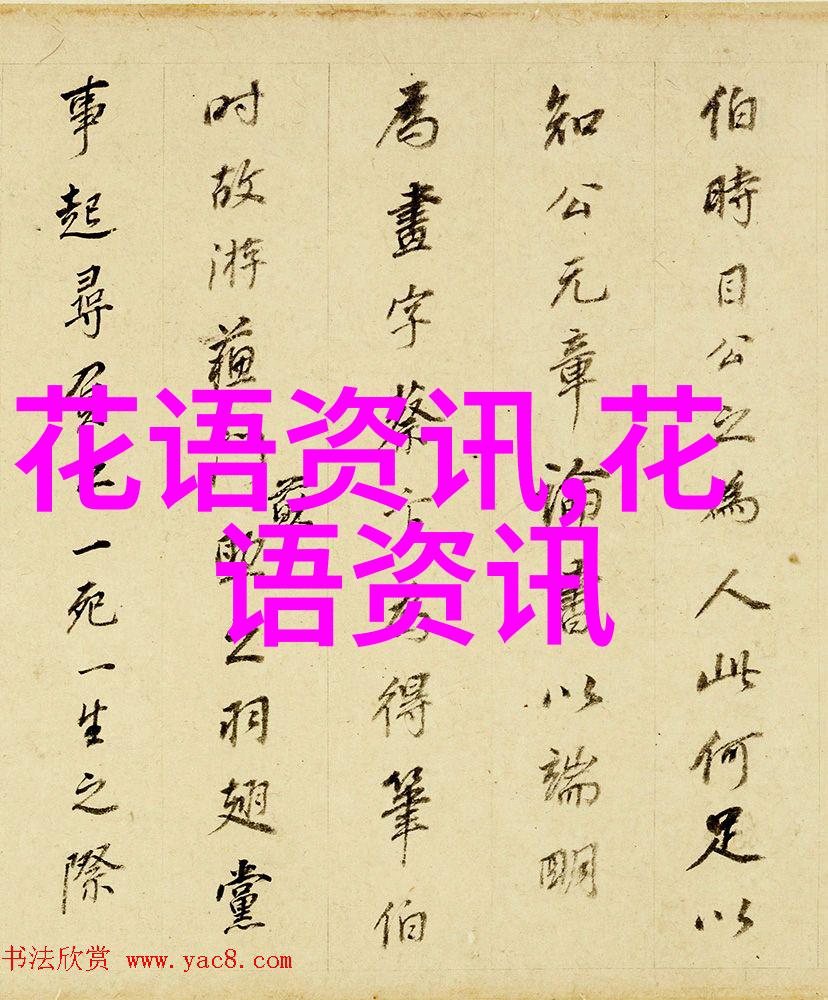 伯時目公之為人此何足以
知公元章論書以端明
為畫字蔡為得筆伯
时故游蘓助之羽翅黨
事起尋一死一生之際
花语资讯,花
语资讯
书法欣赏 www.yac8.com